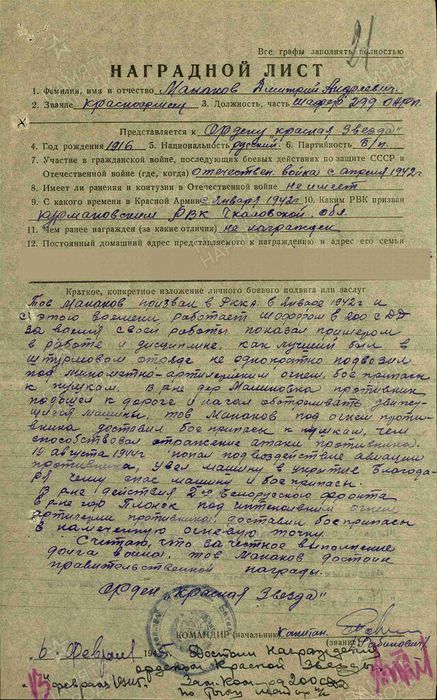 21
Все графы заполнять полностью
НАГРАДНОЙ ЛИСТ
1. Фамилия, имя и отчество Манаков Дмитрий Андреевич.
2. Звание красноармеец 3. Должность, часть шофер 299 ОАРП.
Представляется к Ордену "Красная Звезда"
4. Год рождения 1916 5. Национальность русский 6. Партийность Б/п.
7. Участие в гражданской войне, последующих боевых действиях по защите СССР и
Отечественной войне (где, когда) Отечествен. война с апреля 1942г
8. Имеет ли ранения и контузии в Отечественной войне не имеет
9. С какого времени в Красной Армии с Января 1942г 10. Каким РВК призван
Курмановским РВК Чкаловской обл.
11. Чем ранее награжден (за какие отличия) не награжден
12. Постоянный домашний адрес представляемого к награждению и адрес его семьи
Краткое, конкретное изложение личного боевого подвига или заслуг
Тов. Манаков призван в РККА. в Январе 1942г и
с этого времени работает шофером в 200 с ДД
за время своей работы показал примером
в работе и дисциплине. как лучший был в
штурмовом отряде не однократно подвозил
под минометно-артилерийским огнем, бое припасы
к пушкам. В р-не дер Малиновка противник
подошел к дороге и начал обстреливать движу-
щиеся машины. тов Манаков под огнем проти-
вника доставил бое припасы к пушкам, чем
способствовал отражение атаки противника.
19 августа 1944г попал под воздействие авиации
противника, увел машину в укрытие благода-
ря чему спас машину и бое припасы.
В р-не действия 2-го Белорусского фронта
в р-не гор Плонск под интенсивным огнем
артилерии противника, доставил бое припасы
в намеченную огневую точку.
Считаю, что за честное выполнение
долга воина, тов Манаков достоин
правительственной награды.
Орден "Красная Звезда"
КОМАНДИР (начальник) Капитан
(звание) Рабинович
"6" Февраля 1945г. Достоин награждения
орденом Красной Звезды
Зам. Ком-ра 200 сд
13 февраля 1945г. по тылу